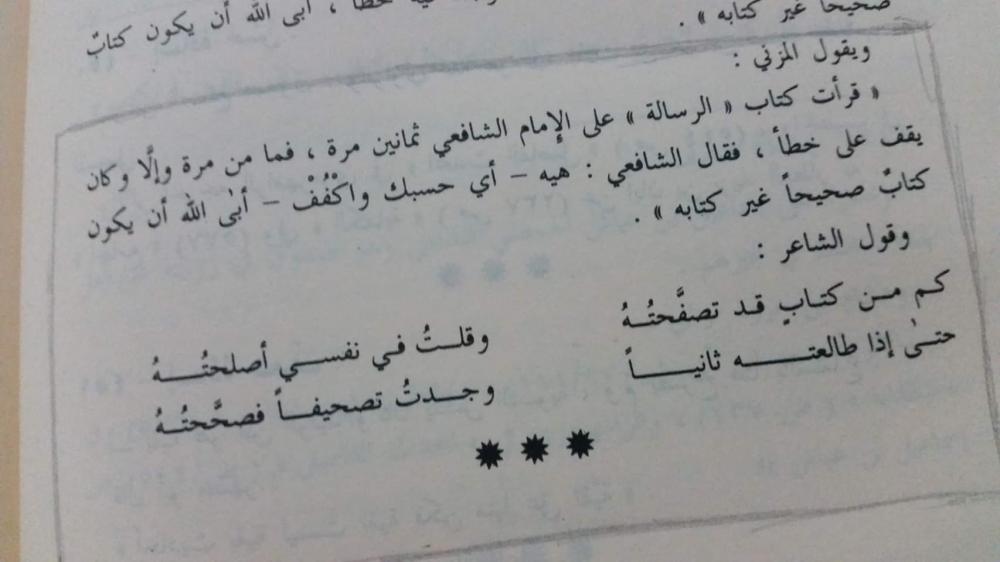 خطأ ، أبى الله أن يكون كتابٌ
صحيحاً غير كتابه » .
ويقول المزني :
« قرأت كتاب « الرسالة » على الإمام الشافعي ثمانين مرة ، فما من مرة وإلَّا وكان
يقف على خطأ ، فقال الشافعي : هيه – أي حسبك واكْفُفْ – أبىٰ الله أن يكون
كتابٌ صحيحاً غير كتابه » .
وقول الشاعر :
كم من كتابٍ قد تصفَّحتُهُ وقلتُ في نفسي أصلحتُهُ
حتىٰ إذا طالعته ثانياً وجدتُ تصحيفاً فصحَّحتُهُ